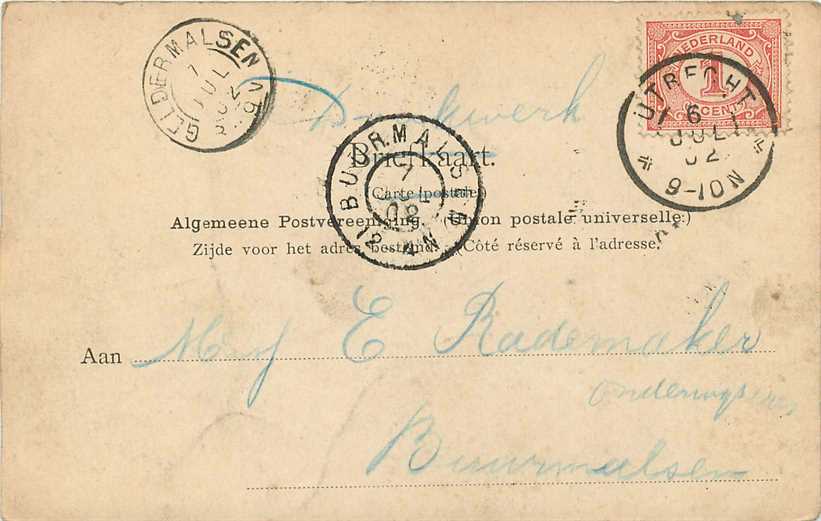 GELDERMALSEN
7
JUL
02
NEDERLAND
1
CENT
UTRECHT
6
JUL
02
9-10N
Drukwerk
BUURMALSEN
7
02
12
4N
Briefkaart.
(Carte postale)
Algemeene Postvereeniging. (Union postale universelle.)
Zijde voor het adres bestemd. (Côté réservé à l'adresse.)
Aan Mej E Rademaker
onderwijzeres
Buurmalsen